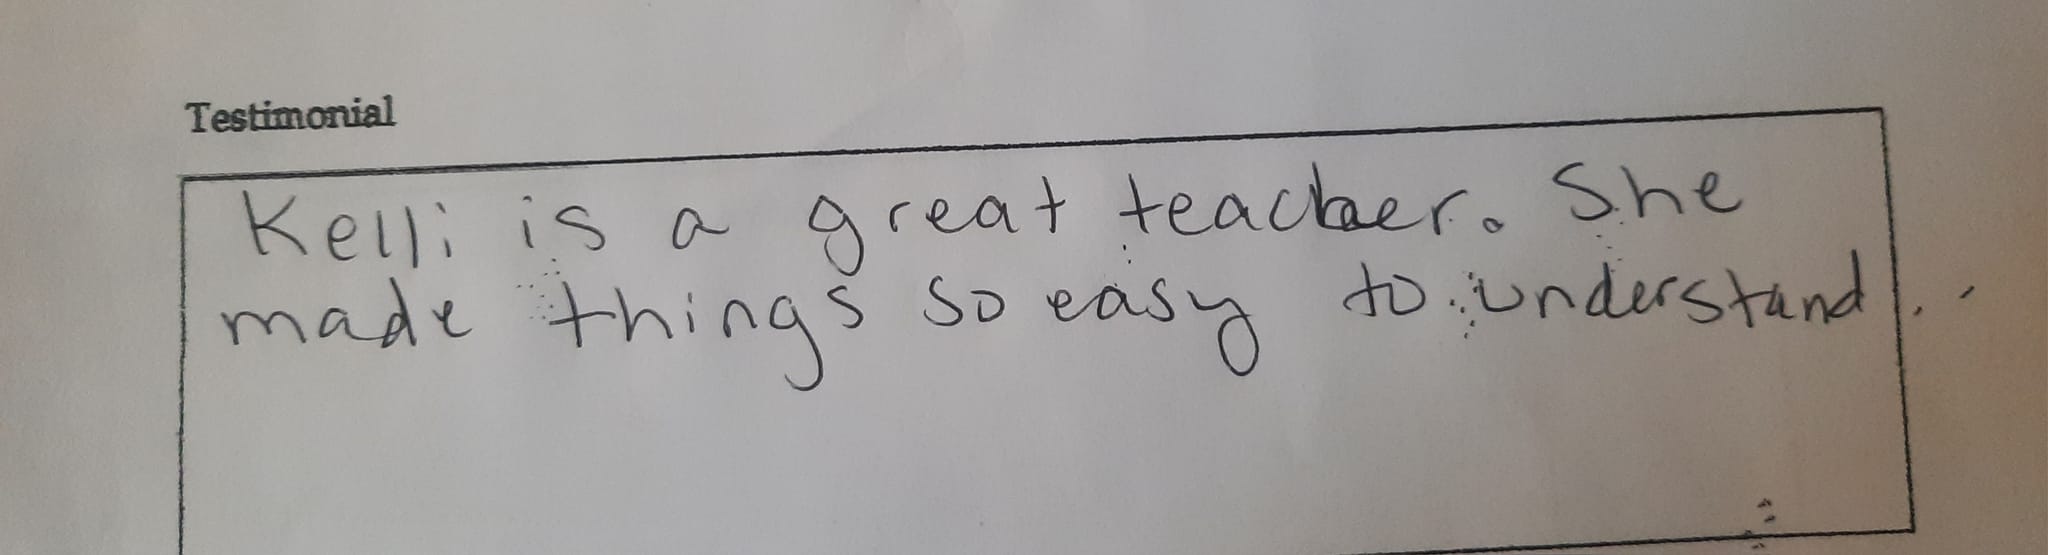 Testimonial
Kelli is a great teacher. She
made things so easy to understand.